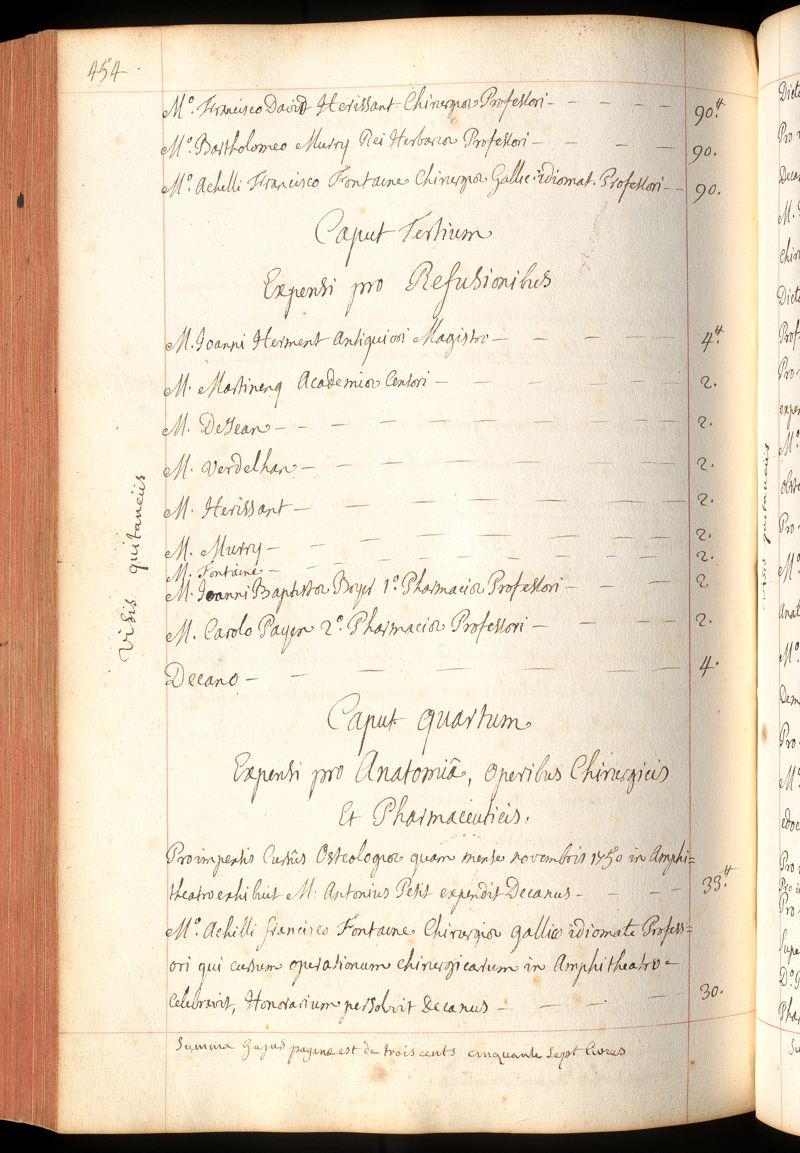 454
Mo. Francisco David Herissant Chirurgiæ Professori - - - - 90.tt
Mo. Bartholomeo Murry Rei Herbariæ Professori - - - - 90.
Mo. Achilli Francisco Fontaine Chirurgiæ Gallic. idiomat. Professori - - 90.
Caput Tertium
Expensi pro Refusionibus
M. Joanni Herment Antiquiori Magistro - - - - - 4.tt
M. Martinenq Academiæ Censori - - - - - - 2.
M. DeJean - - - - - - - - - 2.
M. Verdelhan - - - - - - - - 2.
M. Herissant - - - - - - - - 2.
M. Murry - - - - - - - - 2.
M. Fontaine - - - - - - - - 2.
M. Joanni Baptistæ Boyer 1o. Pharmaciæ Professori - - - 2
M. Carolo Payen 2o. Pharmaciæ Professori - - - - 2.
Decano - - - - - - - - 4.
Visis quitanciis
Caput quartum
Expensi pro Anatomiâ, operibus Chirurgicis
Et Pharmaceuticis.
Pro impensis Cursûs Osteologiæ quam mense novembris 1750 in Amphi=
theatro exhibuit M. Antonius Petit expendit Decanus - - - - 33.tt
Mo. Achilli francisco Fontaine Chirurgiæ gallico idiomate Profess=
ori qui cursum operationum chirurgicarum in Amphitheatro -
Celebravit, Honorarium persolvit Decanus - - - - 30.
Summa hujus paginæ est de trois cents cinquante Sept livres